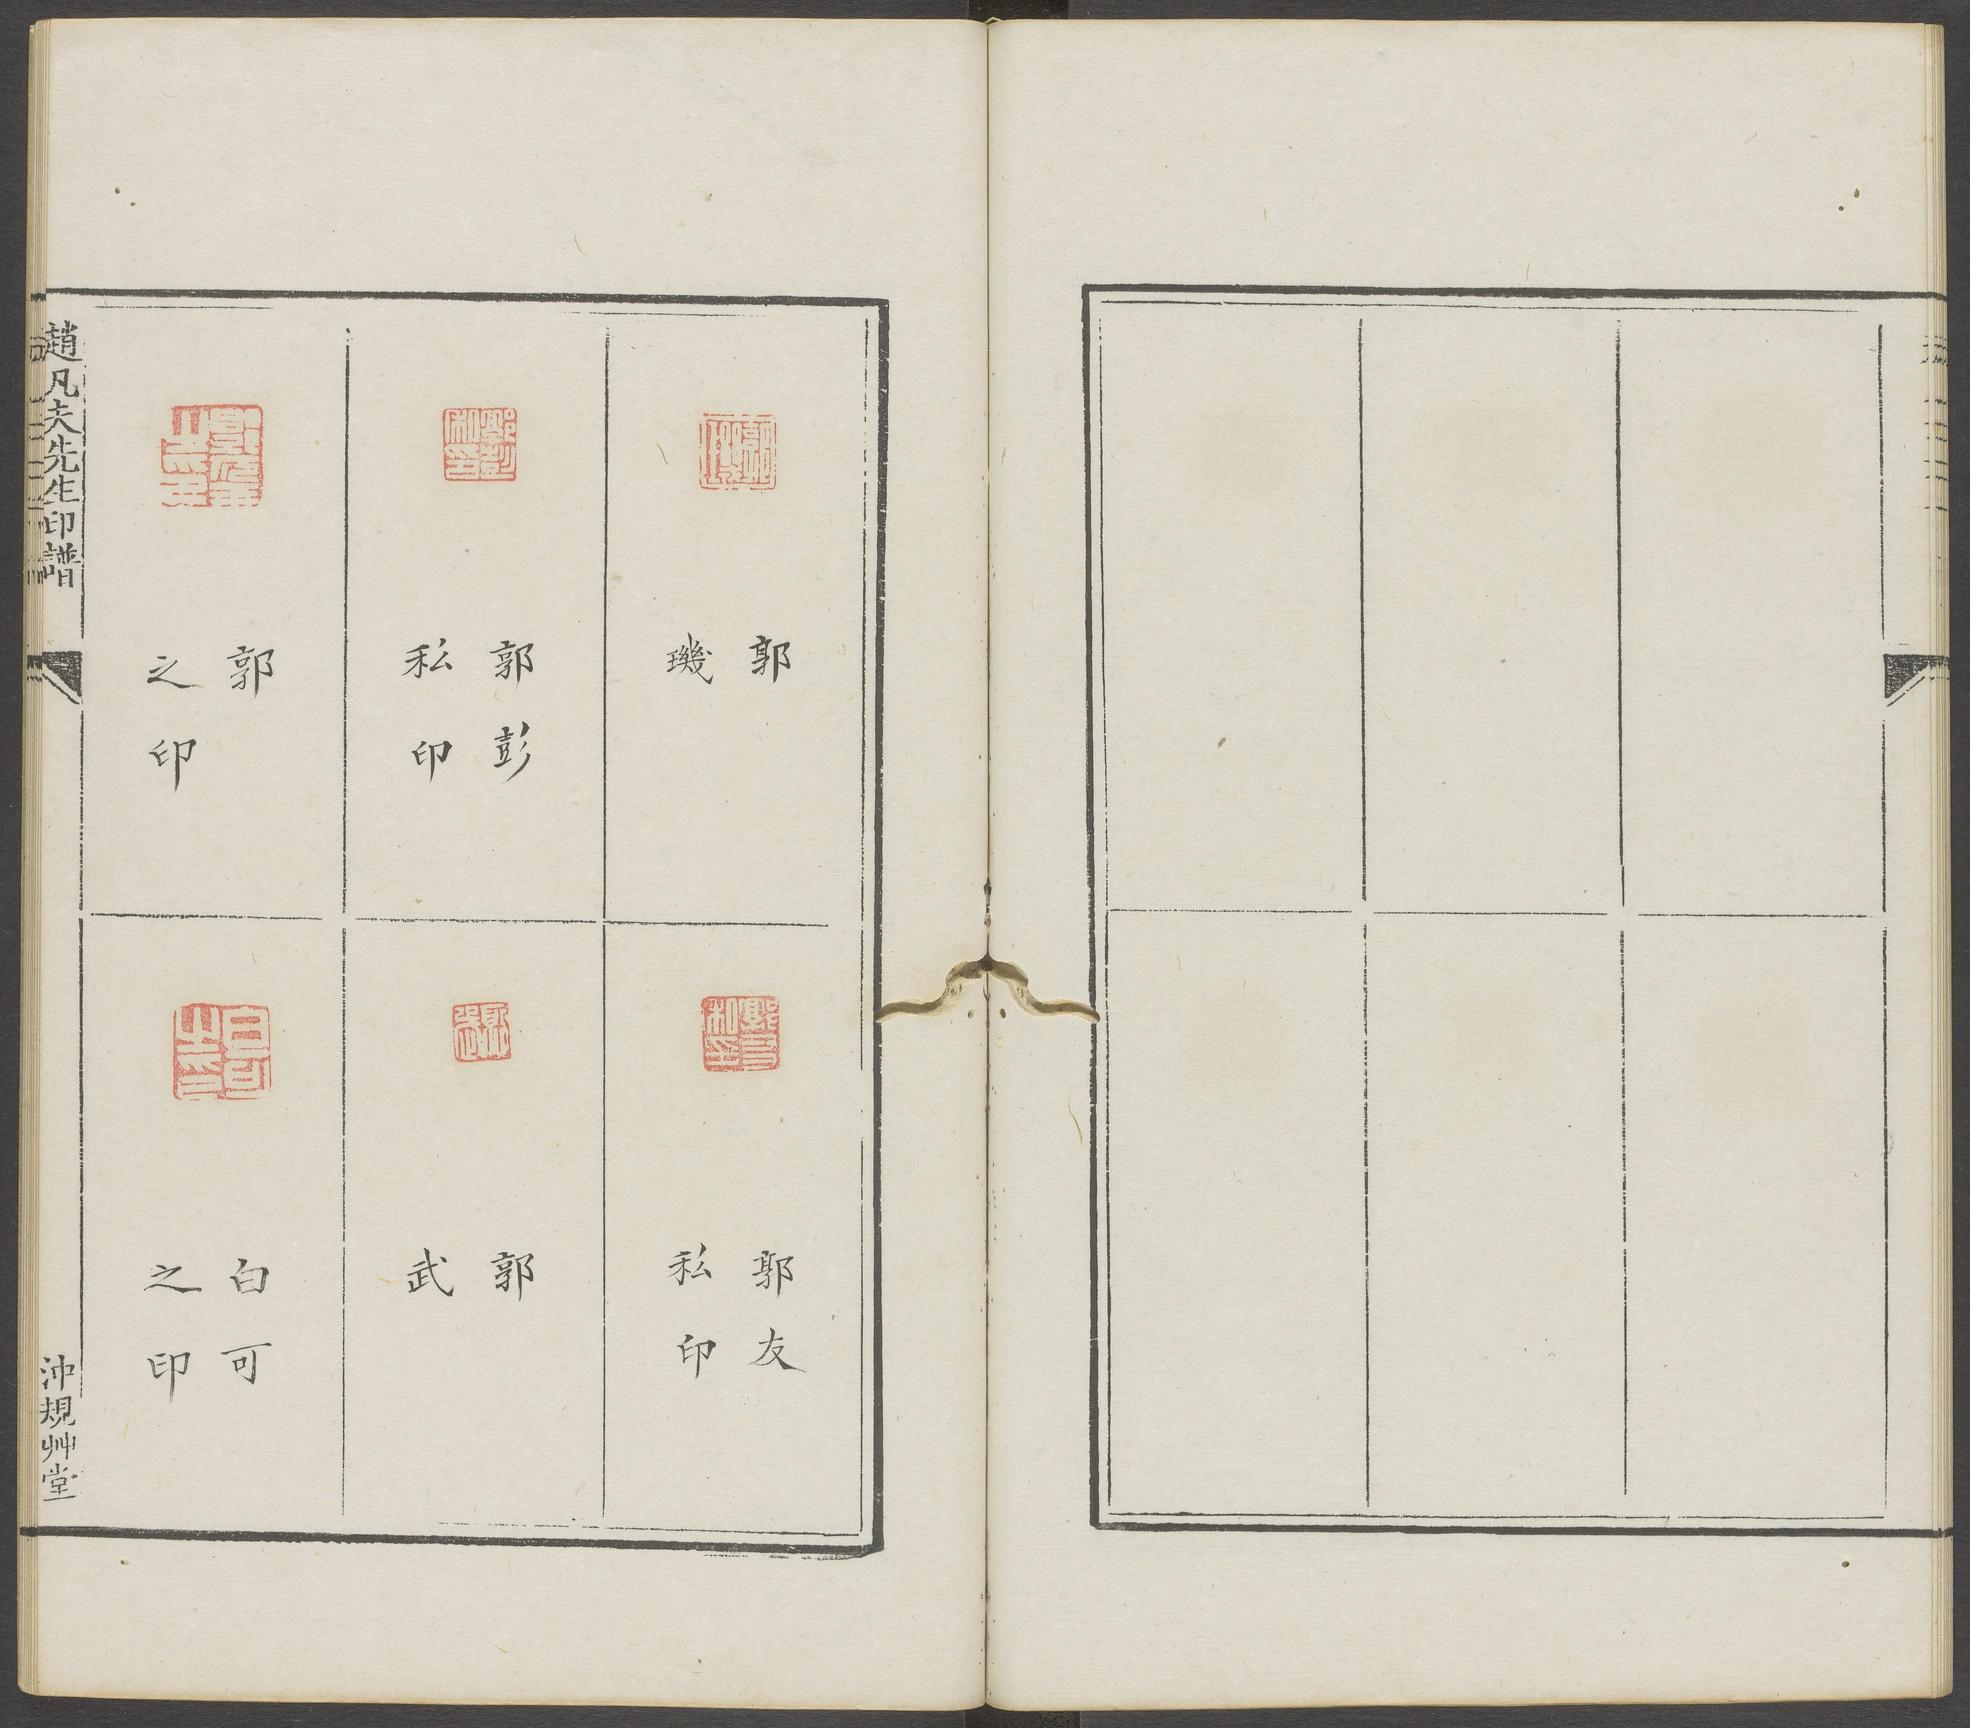 郭
璣
郭友
私印
郭彭
私印
郭
武
郭
之印
白可
之印
趙凡夫先生印譜
沖規艸堂